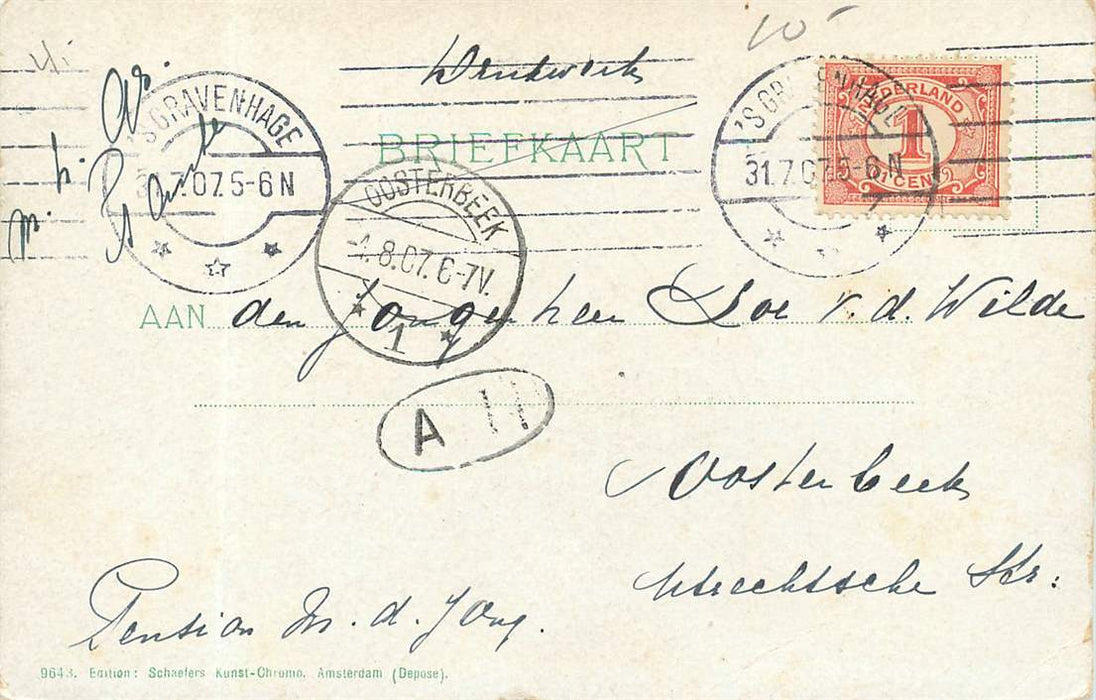 10
Drukwerk
'S GRAVENHAGE
7.07.5-6N
BRIEFKAART
'S GRAVENHAGE
31.7.07.5-6N
NEDERLAND
1
CENT
OOSTERBEEK
-1.8.07.6-7V.
1
AAN den Jongenheer Loe v.d. Wilde
A
Oosterbeek
Utrechtsche Str:
Pension M. d. Jong.
9643. Edition: Schaefers Kunst-Chromo, Amsterdam (Depose).